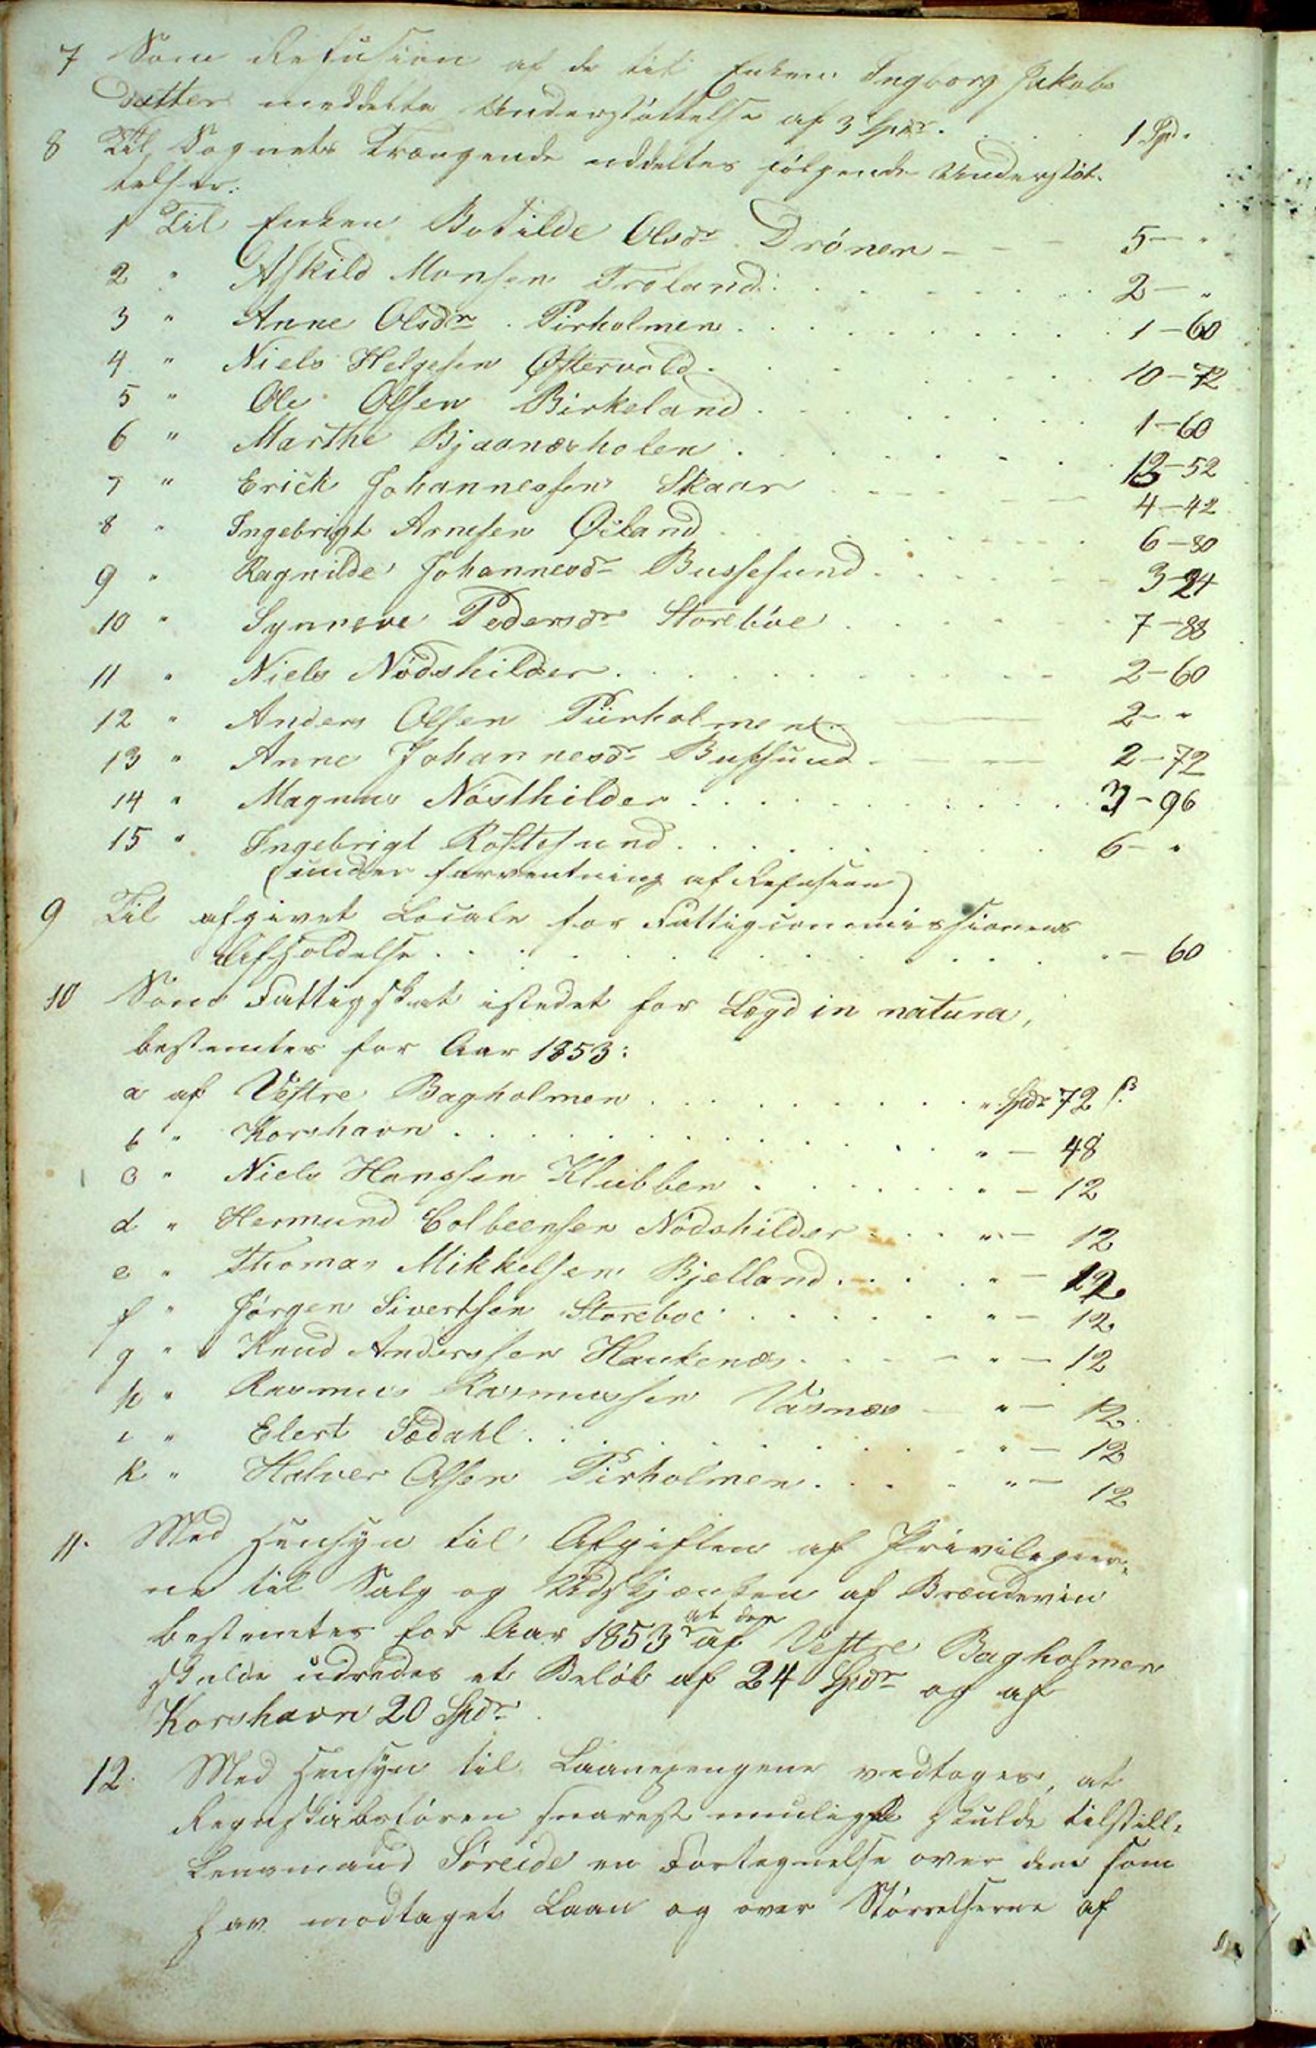 7 Som Refusion af de til Enken Ingborg Jakobs
datter meddelte Understøttelse af 3 Spdr. . . . . 1 Spd "
8 Til Sognets Trængende uddeltes følgende Understøt-
telser:
1 Til Enken Botilde Olsdr Drönen - - - 5 - "
2 " Askild Monsen Troland . . . . . . . 2 - "
3 " Anne Olsdr. Pirholmen . . . . . . . 1 - 60
4 " Niels Helgesen Østervold . . . . . . 10 - 72
5 " Ole Olsen Birkeland . . . . . . . 1 - 60
6 " Marthe Bjaanæsholen . . . . . . 12 - 52
7 " Erick Johannessen Skaar . - - - - 4 - 42
8 " Ingebrigt Arnesen Øeland . . . . . . 6 - 80
9 " Ragnilde Johannesdr Bussesund . . . . . 3 - 24
10 " Synneve Pedersdr Storebøe . . . . . 7 - 88
11 " Niels Nødshilder . . . . . . . . 2 - 60
12 " Anders Olsen Piirholmen . — — 2 - "
13 " Anne Johannesdr Bussund - - - 2 - 72
14 " Magnus Nösthilder . . . . . . . . 3 - 96
15 " Ingebrigt Rostesund . . . . . . . . 6 - "
(under forventning af Refusion)
9 Til afgivet Locale for Fattigcommissionens
Afholdelse . . . . . . . . . . . . - 60
10 Som Fattigskat istedet for Lægd in natura,
bestemtes for Aar 1853:
a af Vestre Bagholmen . . . . . . . . " Spdr 72 ß
b " Korshavn . . . . . . . . . . . . " - 48
c " Niels Hanssen Klubben . . . . . . . " - 12
d " Hermund Colbeensen Nødshilder . . . " - 12
e " Thomas Mikkelsen Bjelland . . . . " - 12
f " Jörgen Sivertsen Storeboe . . . . . . " - 12
g " Knud Anderssen Haukenæs . . . - " - 12
h " Rasmus Rasmussen Vasnæs - " - 12
i " Elert Sædahl . . . . . . . . . . " - 12
k " Halver Olsen Pirholmen . . . . " - 12
11. Med Hensyn til Afgiften af Privilegier-
ne til Salg og Udskjænken af Brændeviin
bestemtes for Aar 1853 at der af Vestre Bagholmen
skulde udredes et Beløb af 24 Spdr og af
Korshavn 20 Spdr.
12. Med Hensyn til Laanepengene vedtoges, at
Regnskabsføren snarest muligst skulde tilstille
Lensmand Søreide en Fortegnelse over dem som
har modtaget Laan og over Størrelserne af